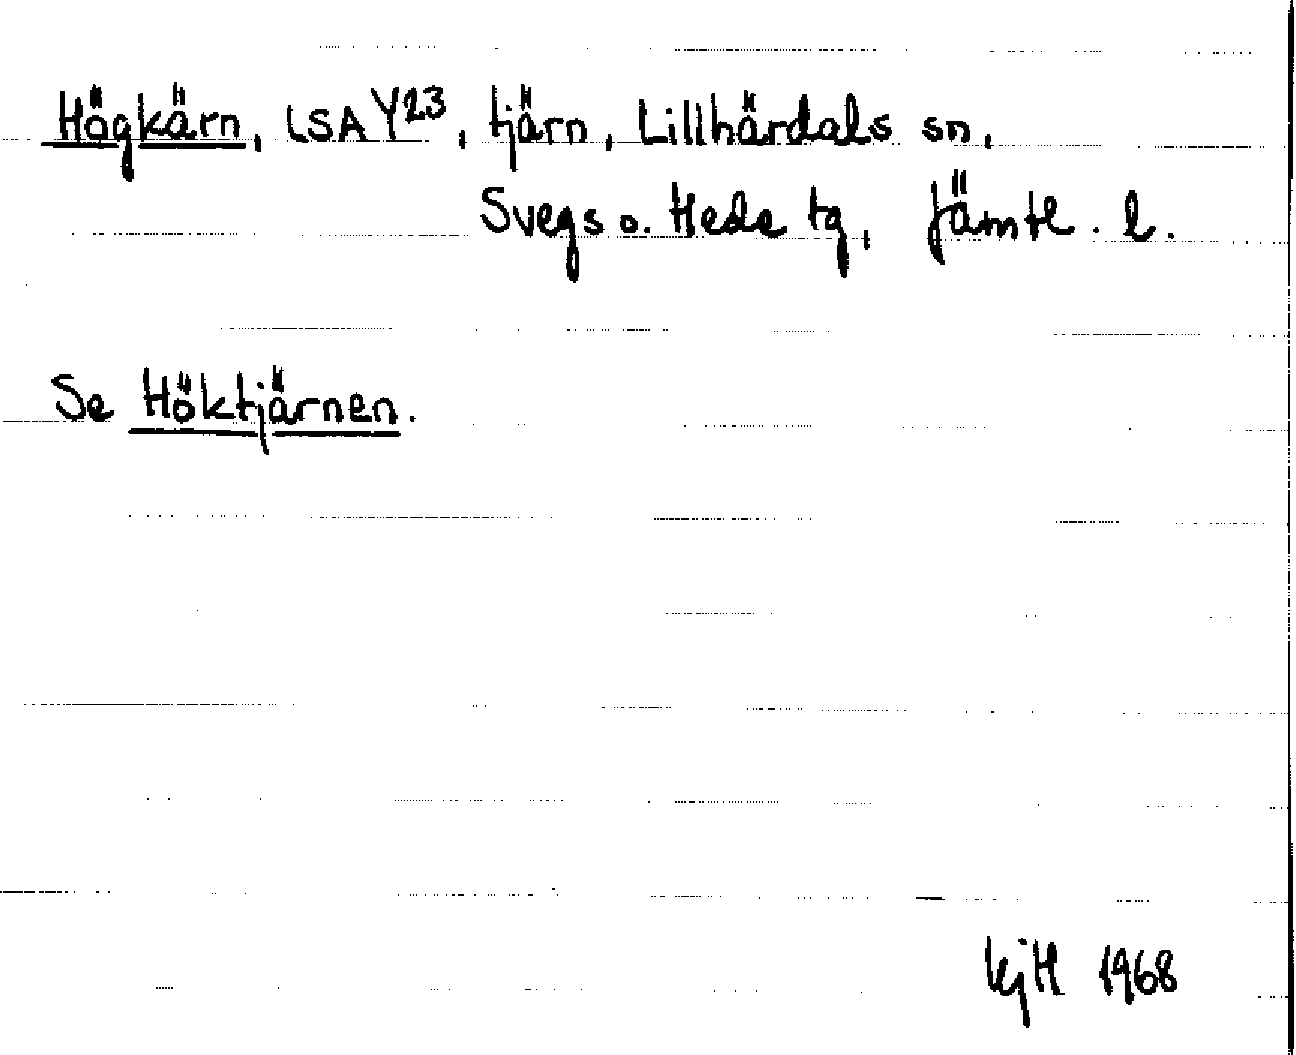 Högkärn, LSA Y23, tjärn, Lillhärdals sn,
Svegs o. Hede tg, Jämtl. l.
Se Höktjärnen.
KjH 1968